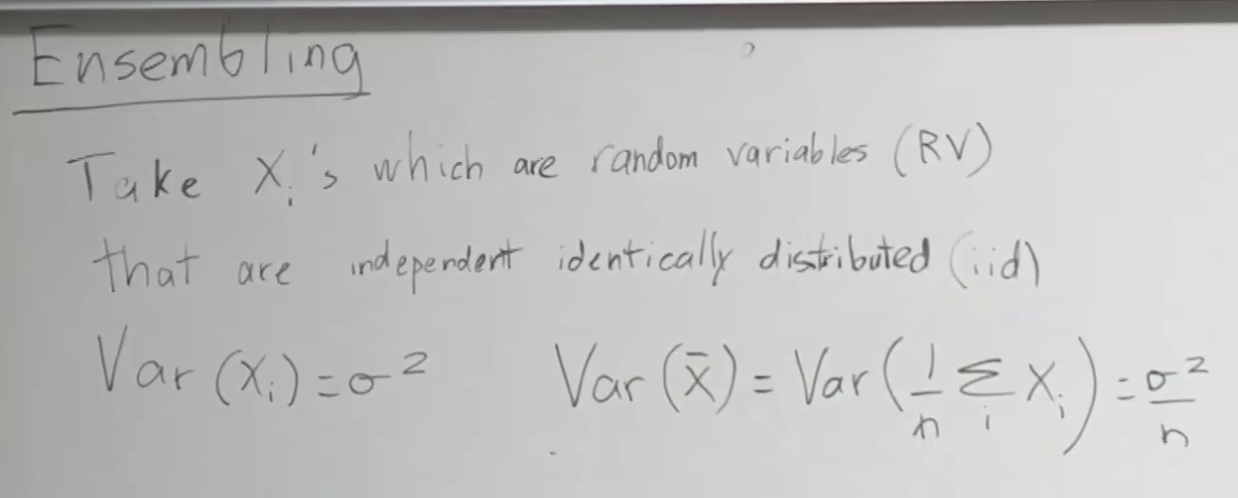 Ensembling
Take Xᵢ's which are random variables (RV)
that are independent identically distributed (iid)
Var (Xᵢ) = σ² Var (x̄) = Var (1/n Σᵢ Xᵢ) = σ²/n